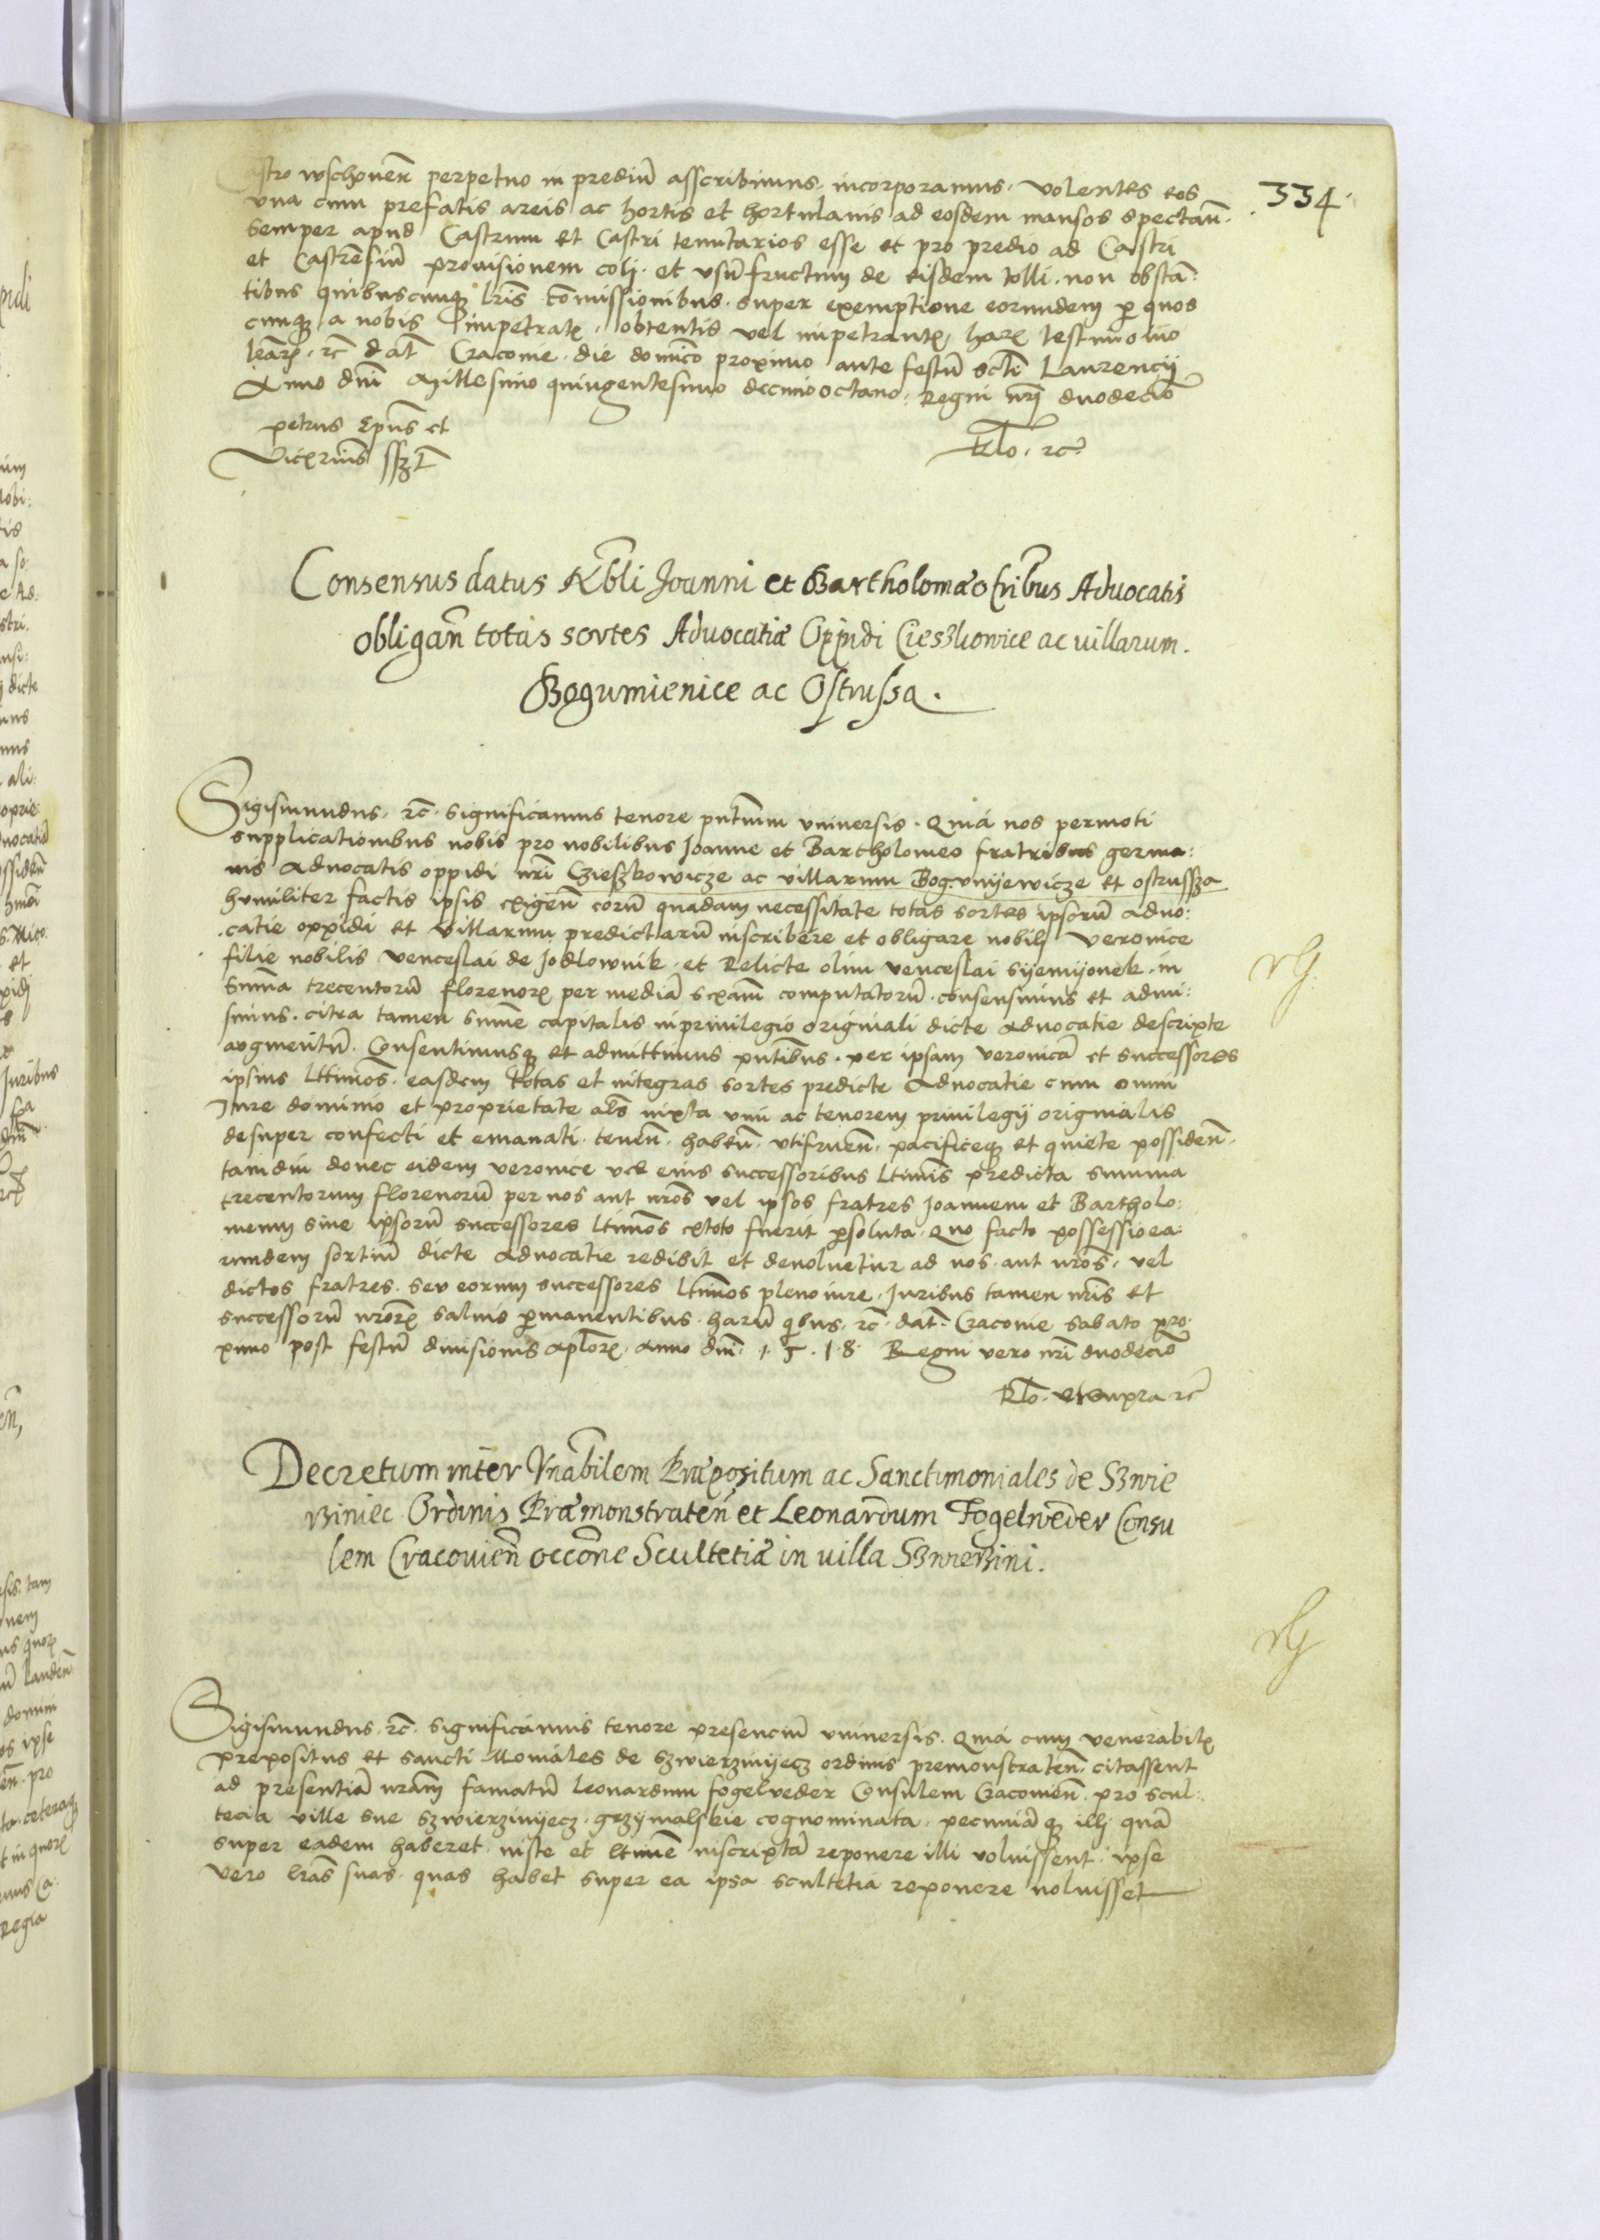 334
Castro wschouen perpetuo in prediu asscribimus. incorporamus. volentes eos
vna cum prefatis areis ac hortis et hortulanis ad eosdem mansos spectan.
semper apud Castrum et Castri tenutarios esse et pro predio ad Castri
et Castrensiu prouisionem colj. et vsufructum de eisdem tolli. non obstan:
tibus quibuscunq lris comissionibus. super exemptione eorundem p quos
cunq a nobis impetrat. obtentis vel impetrant. har testimonio
lrar. rc dat Cracouie. die domico proximo ante festu scti Laurencij
Anno dni Millesimo quingentesimo decimooctauo. Regni nrj duodecio
petrus Epus et
Vicerius sszt
Rlo. rc
Consensus datus Nbli Joanni et Bartholomæo fribus Aduocatis
obligan totas sortes Aduocatiæ Oppidi Cieszkowice ac uillarum.
Bogumienice ac Ostrussa.
Sigismundus. rc. significamus tenore pntium vniuersis. Quia nos permoti
supplicationibus nobis pro nobilibus Joanne et Bartholomeo fratribus germa:
nis aduocatis oppidi nri Czieszkowicze ac villarum Bogunijewicze et ostrussza
humiliter factis ipsis exigen eoru quadam necessitate totas sortes ipsoru aduo:
catie oppidi et villarum predictaru inscribere et obligare nobili Veronice
filie nobilis Venceslai de Jodlownik. et Relicte olim venceslai Sijemijonek. in
suma trecentoru florenor per media sexam computatoru. consensimus et admi:
simus. citra tamen sume capitalis in priuilegio originali dicte aduocatie descripte
augmentu. Consentimusq et admittimus pntibus. per ipsam veronica et successores
ipsius lttimos. easdem totas et integras sortes predicte Aduocatie cum omni
Jure dominio et proprietate als iuxta vim ac tenorem priuilegij originalis
desuper confecti et emanati. tenen. haben. vtifruen. pacificeq et quiete possiden.
tamdiu donec eidem veronice vel eius successoribus lttimis predicta summa
trecentorum florenoru per nos aut nros vel ipsos fratres Joannem et Bartholo:
meum siue ipsoru successores lttimos extoto fuerit psoluta. Quo facto possessio ea:
rundem sortiu dicte aduocatie redibit et deuoluetur ad nos. aut nros. vel
dictos fratres. seu eorum successores lttimos pleno iure. Juribus tamen nris et
successoru nror saluis pmanentibus. haru qibus. rc. dat. Cracouie sabato pro.
ximo post festu diuisionis aplor. anno dni. 1.5.1.8. Regni vero nri duodecio
Rlo. vt supra rc
Decretum inter Vnabilem Præpositum ac Sanctimoniales de Szwie
rziniec Ordinis Præmonstraten et Leonardum Fogelweder Consu
lem Cracouien occone Scultetiæ in uilla Szwierzini.
Sigismundus. rc. significamus tenore presenciu vniuersis. Quia cum venerabil
prepositus et sancti Moniales de szwierzinijecz ordinis premonstraten. citassent
ad presentia nram famatu Leonardum fogelveder Consulem Cracouien. pro scul:
tecia ville sue szwierzinijecz. grzymalskie cognominata. pecunia q illj qua
super eadem haberet. iuste et lttime inscripta reponere illi voluissent. ipse
vero lras suas. quas habet super ea ipsa scultetia reponere noluisset